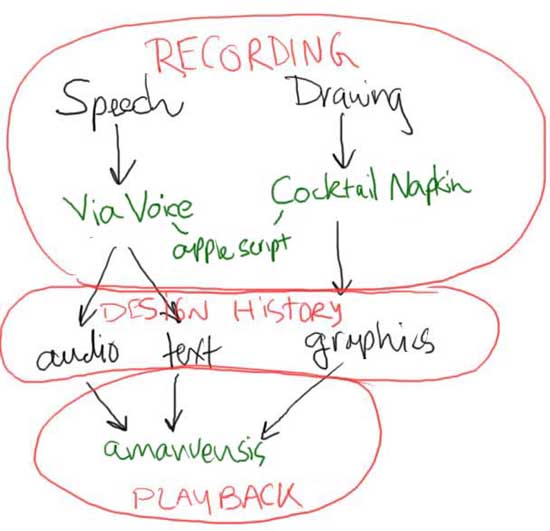 RECORDING
Speech Drawing
Via Voice Cocktail Napkin
apple script
DESIGN HISTORY
audio text graphics
amanuensis
PLAYBACK